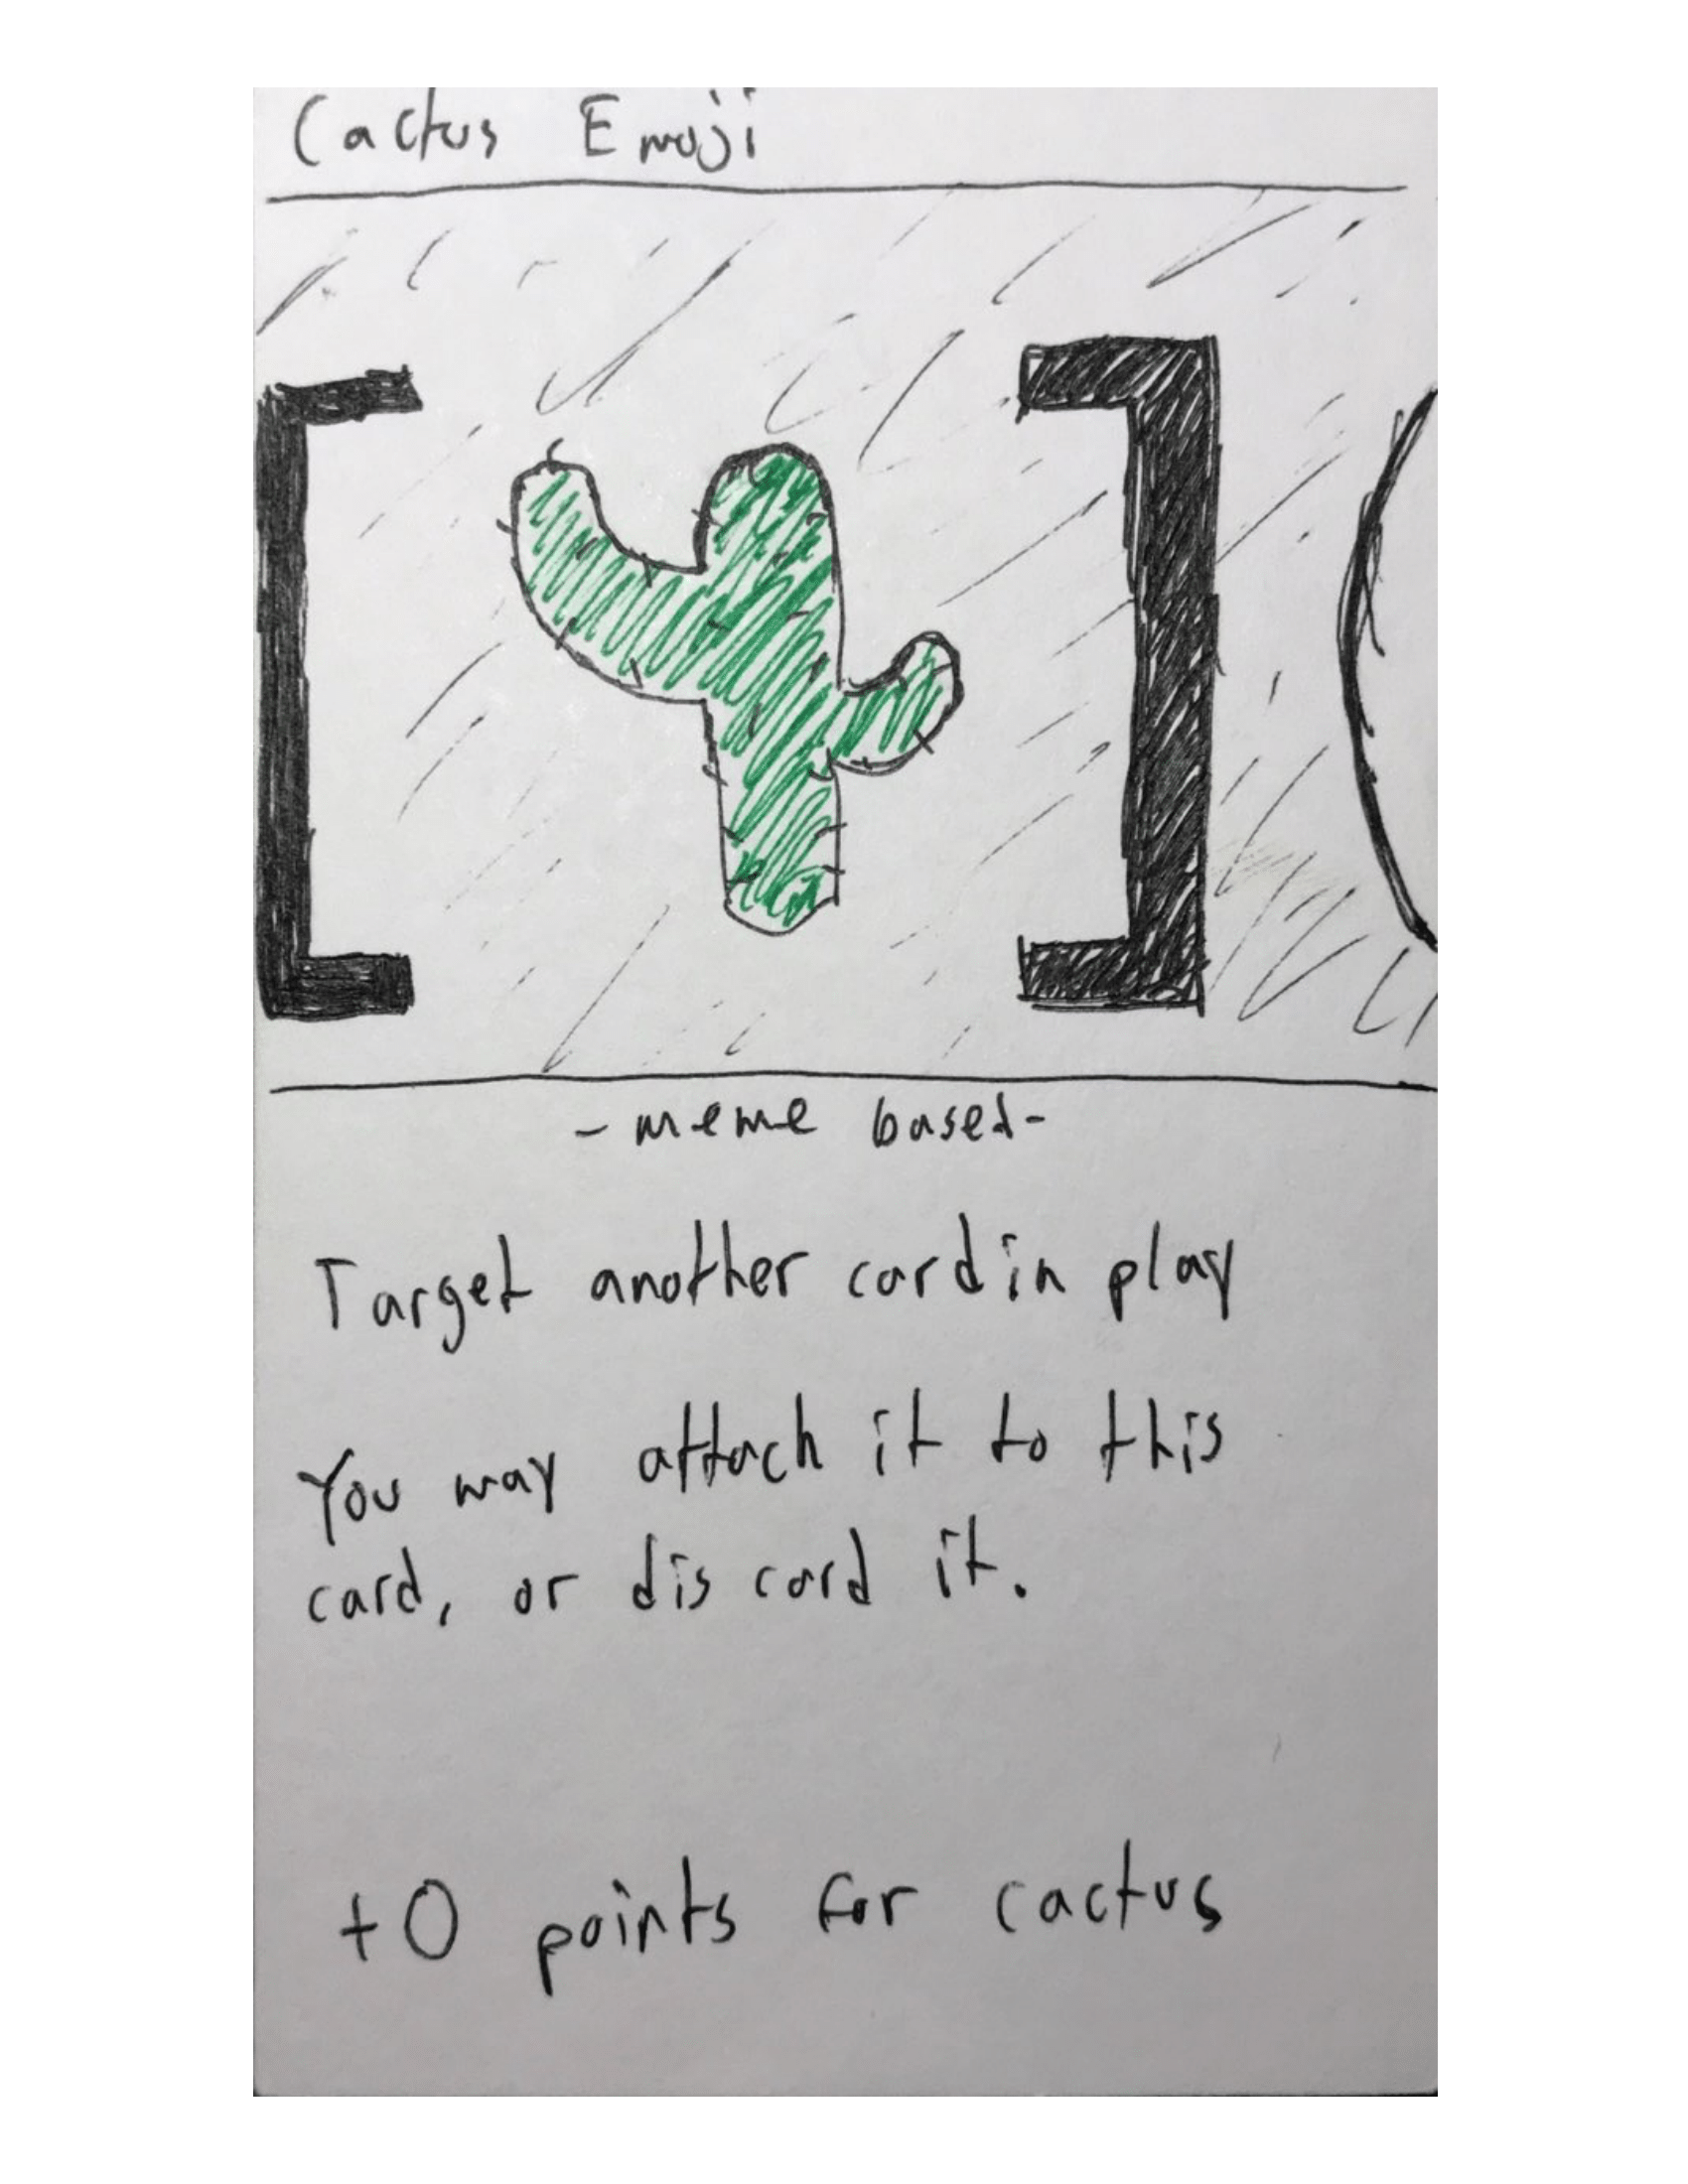 Cactus Emoji
[ ] (
- meme based -
Target another card in play
You may attach it to this
card, or dis card it.
+0 points for cactus